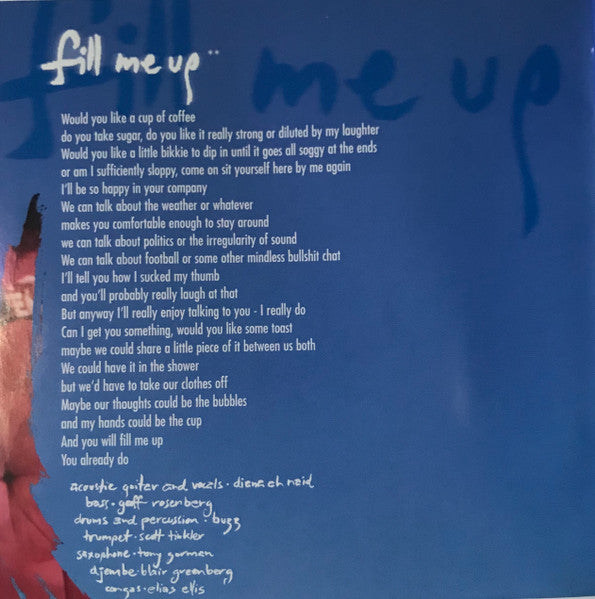 fill me up**
fill me up
Would you like a cup of coffee
do you take sugar, do you like it really strong or diluted by my laughter
Would you like a little bikkie to dip in until it goes all soggy at the ends
or am I sufficiently sloppy, come on sit yourself here by me again
I'll be so happy in your company
We can talk about the weather or whatever
makes you comfortable enough to stay around
we can talk about politics or the irregularity of sound
We can talk about football or some other mindless bullshit chat
I'll tell you how I sucked my thumb
and you'll probably really laugh at that
But anyway I'll really enjoy talking to you - I really do
Can I get you something, would you like some toast
maybe we could share a little piece of it between us both
We could have it in the shower
but we'd have to take our clothes off
Maybe our thoughts could be the bubbles
and my hands could be the cup
And you will fill me up
You already do
acoustic guitar and vocals · diana ah naid
bass · geoff rosenberg
drums and percussion · buzz
trumpet · scott tinkler
saxophone · tony gorman
djembe · blair greenberg
congas · elias ellis